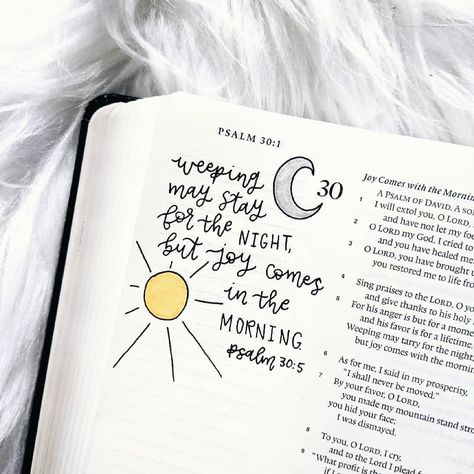 PSALM 30:1
weeping
may stay
for the NIGHT,
but joy comes
in the
MORNING.
psalm 30:5
30
Joy Comes with the Mornin
A PSALM OF DAVID. A SO
1 I will extol you, O LORD,
and have not let my foe
2 O LORD my God, I cried to
and you have healed me.
3 O LORD, you have brought
you restored me to life fro
4 Sing praises to the LORD, O yo
and give thanks to his holy
5 For his anger is but for a mome
and his favor is for a lifetime.
Weeping may tarry for the night,
but joy comes with the morning
6 As for me, I said in my prosperity,
"I shall never be moved."
7 By your favor, O LORD,
you made my mountain stand stro
you hid your face;
I was dismayed.
8 To you, O LORD, I cry,
and to the Lord I plead f
9 "What profit is the
if I